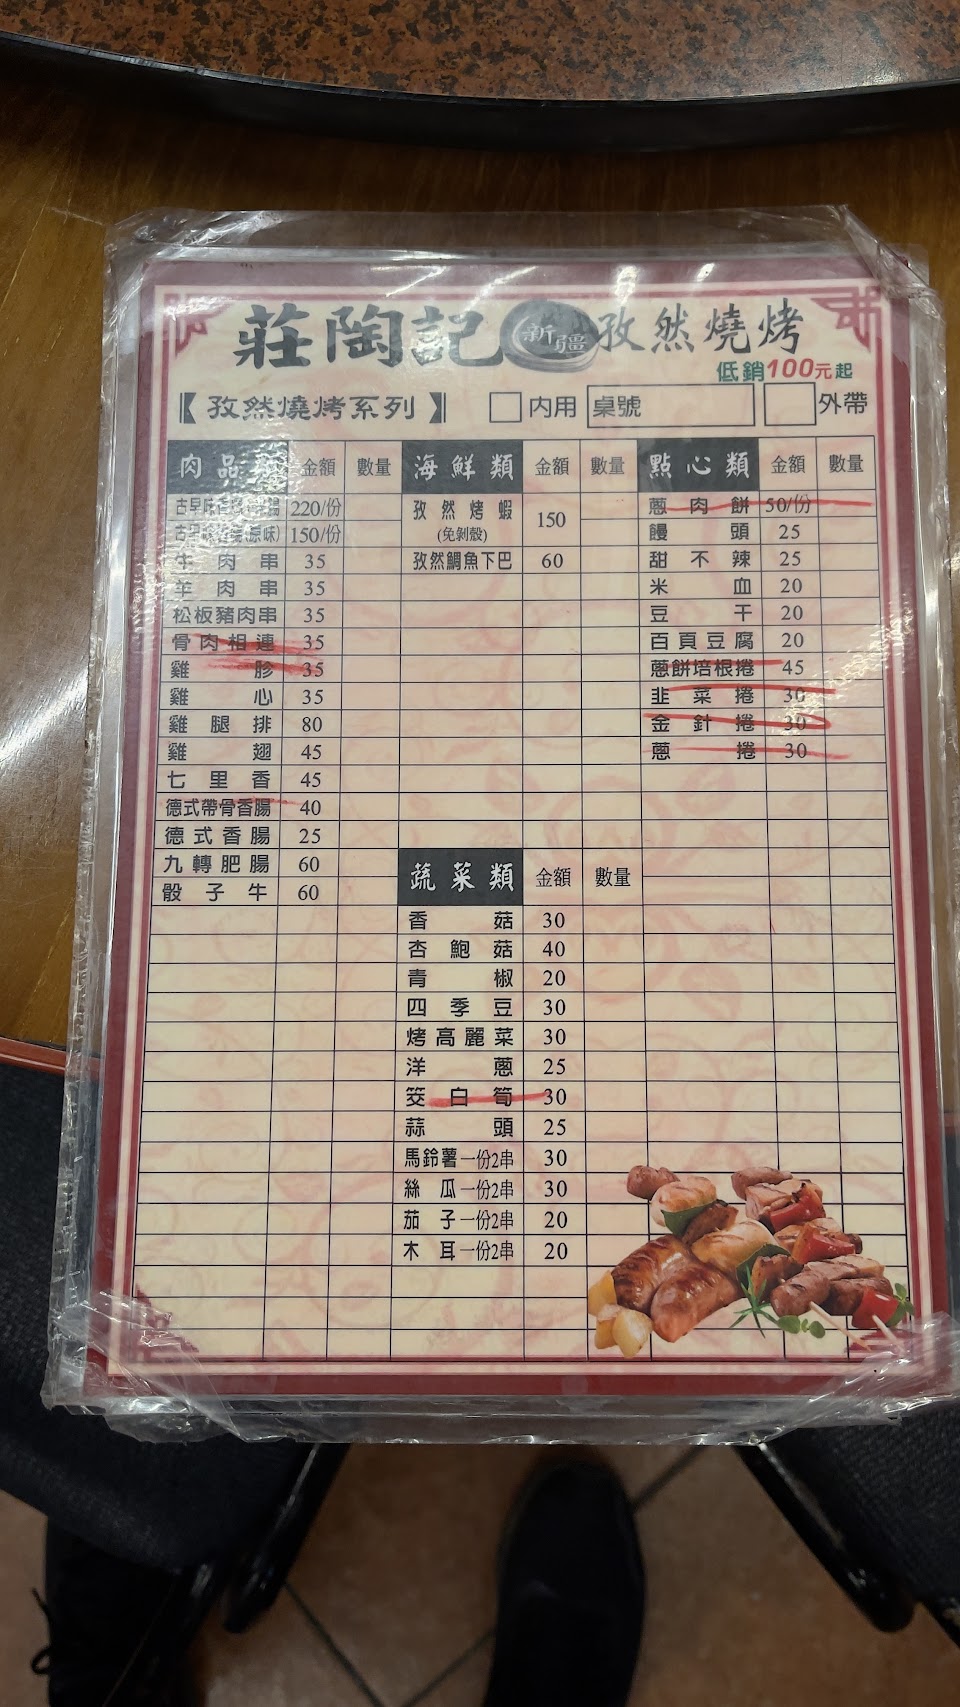 莊陶記 新疆 孜然燒烤
低銷100元起
【孜然燒烤系列】 内用 桌號 外帶
肉品 金額 數量
古早味 220/份
古早味 (原味) 150/份
牛肉串 35
羊肉串 35
松板豬肉串 35
骨肉相連 35
雞胗 35
雞心 35
雞腿排 80
雞翅 45
七里香 45
德式帶骨香腸 40
德式香腸 25
九轉肥腸 60
骰子牛 60
海鮮類 金額 數量
孜然烤蝦 150
(免剝殼)
孜然鯛魚下巴 60
蔬菜類 金額 數量
香菇 30
杏鮑菇 40
青椒 20
四季豆 30
烤高麗菜 30
洋蔥 25
筊白筍 30
蒜頭 25
馬鈴薯一份2串 30
絲瓜一份2串 30
茄子一份2串 20
木耳一份2串 20
點心類 金額 數量
蔥肉餅 50/份
饅頭 25
甜不辣 25
米血 20
豆干 20
百頁豆腐 20
蔥餅培根捲 45
韭菜捲 30
金針捲 30
蔥捲 30